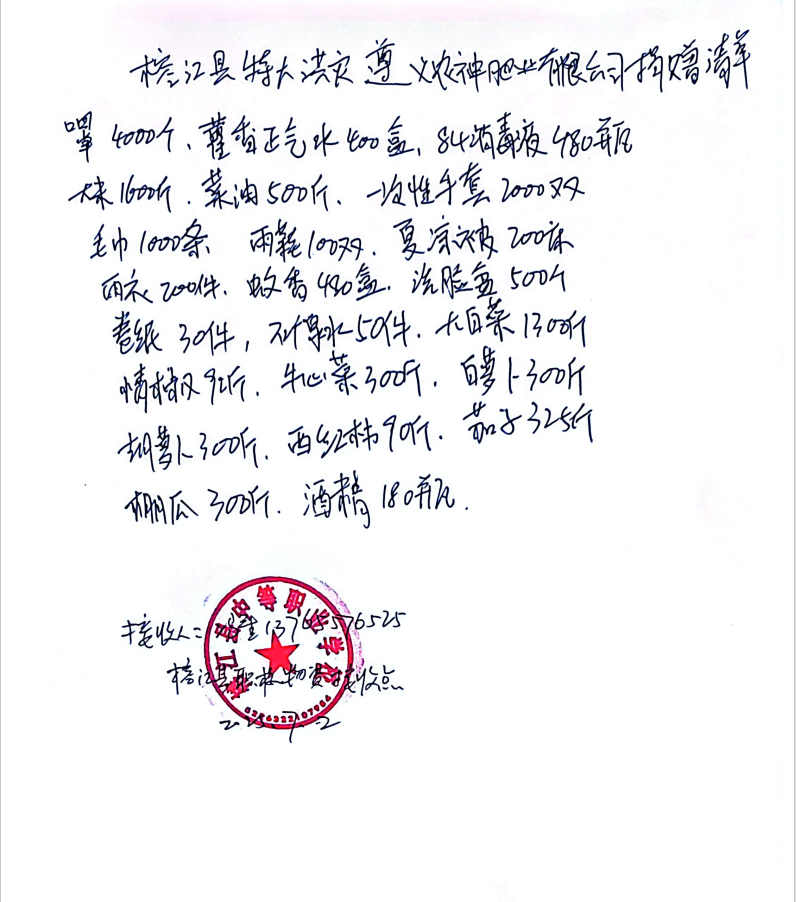 榕江县特大洪灾遵义农神肥业有限公司捐赠清单
口罩4000个、藿香正气水400盒、84消毒液480瓶
大米1600斤、菜油500斤、一次性手套2000双
毛巾1000条 雨鞋100双、夏凉被200床
雨衣200件、蚊香480盒、洗脸盆500个
卷纸30件，矿泉水50件、大白菜1300斤
斤、牛心菜300斤、白萝卜300斤
胡萝卜300斤、西红柿90斤、茄子325斤
瓜300斤、酒精180瓶.
接收人：13768576525
榕江县职校物资接收点
2025.7.2
榕江县中等职业学校